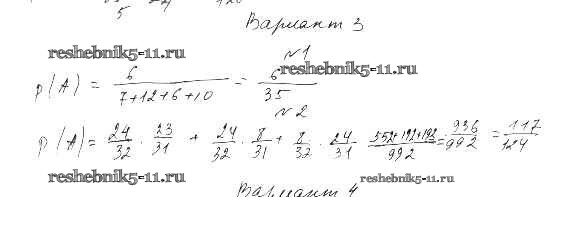 5
Вариант 3
reshebnik5-11.ru
№1
p(A) = 6/(7+12+6+10) = 6/35
reshebnik5-11.ru
№2
p(A) = 24/32 · 23/31 + 24/32 · 8/31 + 8/32 · 24/31 (552+192+192)/992 = 936/992 = 117/124
reshebnik5-11.ru
reshebnik5-11.ru
Вариант 4